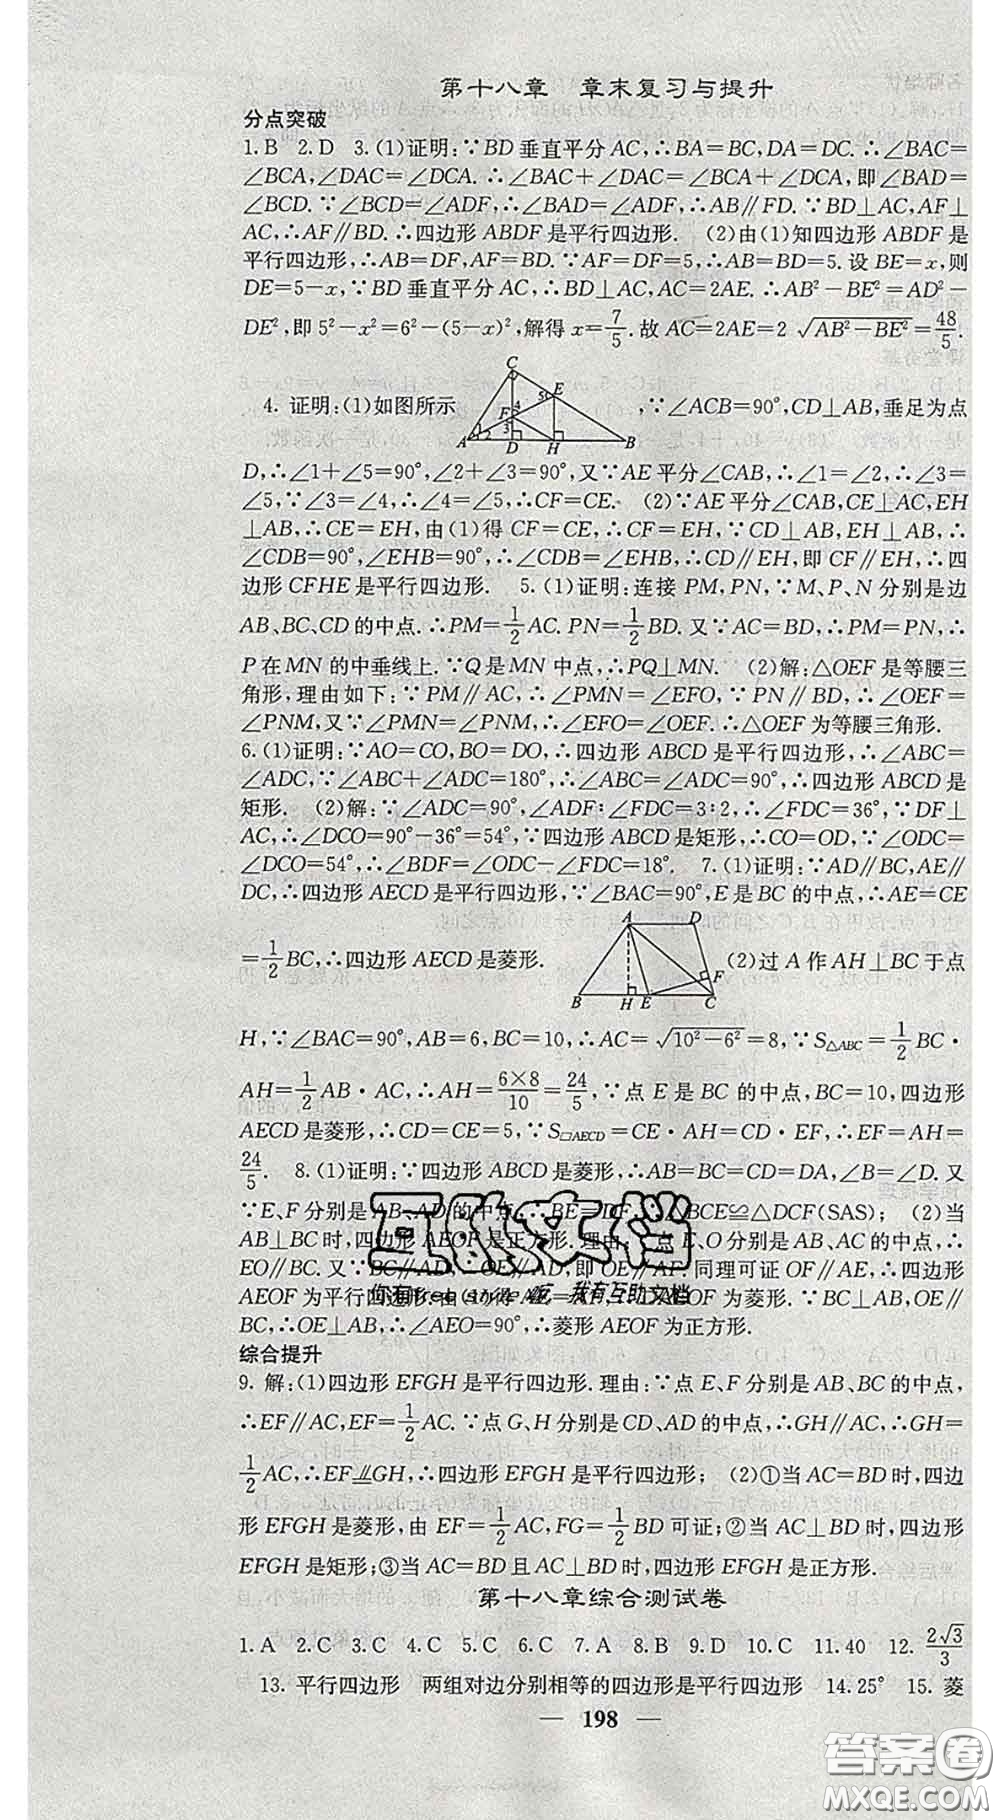 第十八章　章末复习与提升
分点突破
1.B　2.D　3.(1)证明:∵BD垂直平分AC,∴BA=BC,DA=DC.∴∠BAC=
∠BCA,∠DAC=∠DCA.∴∠BAC+∠DAC=∠BCA+∠DCA,即∠BAD=
∠BCD.∵∠BCD=∠ADF,∴∠BAD=∠ADF,∴AB∥FD.∵BD⊥AC,AF⊥
AC,∴AF∥BD.∴四边形ABDF是平行四边形.　(2)由(1)知四边形ABDF是
平行四边形,∴AB=DF,AF=BD.∵AF=DF=5,∴AB=BD=5.设BE=x,则
DE=5-x,∵BD垂直平分AC,∴BD⊥AC,AC=2AE.∴AB²-BE²=AD²-
DE²,即5²-x²=6²-(5-x)²,解得x=7/5.故AC=2AE=2√(AB²-BE²)=48/5.
C
E
5
4
F
3
1
2
A D H B
4. 证明:(1)如图所示　,∵∠ACB=90°,CD⊥AB,垂足为点
D,∴∠1+∠5=90°,∠2+∠3=90°,又∵AE平分∠CAB,∴∠1=∠2,∴∠3=
∠5,∵∠3=∠4,∴∠4=∠5,∴CF=CE.　(2)∵AE平分∠CAB,CE⊥AC,EH
⊥AB,∴CE=EH,由(1)得CF=CE,∴CF=EH,∵CD⊥AB,EH⊥AB,∴
∠CDB=90°,∠EHB=90°,∴∠CDB=∠EHB,∴CD∥EH,即CF∥EH,∴四
边形CFHE是平行四边形.　5.(1)证明:连接PM,PN,∵M、P、N分别是边
AB、BC、CD的中点.∴PM=1/2AC.PN=1/2BD.又∵AC=BD,∴PM=PN,∴
P在MN的中垂线上.∵Q是MN中点,∴PQ⊥MN.　(2)解:△OEF是等腰三
角形,理由如下:∵PM∥AC,∴∠PMN=∠EFO,∵PN∥BD,∴∠OEF=
∠PNM,又∵∠PMN=∠PNM,∴∠EFO=∠OEF.∴△OEF为等腰三角形.
6.(1)证明:∵AO=CO,BO=DO,∴四边形ABCD是平行四边形,∴∠ABC=
∠ADC,∵∠ABC+∠ADC=180°,∴∠ABC=∠ADC=90°,∴四边形ABCD是
矩形.　(2)解:∵∠ADC=90°,∠ADF∶∠FDC=3∶2,∴∠FDC=36°,∵DF⊥
AC,∴∠DCO=90°-36°=54°,∵四边形ABCD是矩形,∴CO=OD,∴∠ODC=
∠DCO=54°,∴∠BDF=∠ODC-∠FDC=18°.　7.(1)证明:∵AD∥BC,AE∥
DC,∴四边形AECD是平行四边形,∵∠BAC=90°,E是BC的中点,∴AE=CE
=1/2BC,∴四边形AECD是菱形.　(2)过A作AH⊥BC于点
A D
F
B H E C
H,∵∠BAC=90°,AB=6,BC=10,∴AC=√(10²-6²)=8,∵S△ABC=1/2BC·
AH=1/2AB·AC,∴AH=6×8/10=24/5,∵点E是BC的中点,BC=10,四边形
AECD是菱形,∴CD=CE=5,∵S□AECD=CE·AH=CD·EF,∴EF=AH=
24/5.　8.(1)证明:∵四边形ABCD是菱形,∴AB=BC=CD=DA,∠B=∠D.又
∵E、F分别是AB、AD的中点,∴BE=DF,BCE≌△DCF(SAS);　(2)当
AB⊥BC时,四边形AEOF是正方形.理由:点E、O分别是AB、AC的中点,∴
EO∥BC.又∵BC∥AD,∴OE∥AD,即OE∥AF.同理可证OF∥AE,∴四边形
AEOF为平行四边形.由(1)得AE=AF,AEOF为菱形.∵BC⊥AB,OE∥
BC,∴OE⊥AB,∴∠AEO=90°,∴菱形AEOF为正方形.
互助文档
你有free style呢, 我有互助文档
综合提升
9. 解:(1)四边形EFGH是平行四边形.理由:∵点E、F分别是AB、BC的中点,
∴EF∥AC,EF=1/2AC.∵点G、H分别是CD、AD的中点,∴GH∥AC,GH=
1/2AC,∴EF⫽GH,∴四边形EFGH是平行四边形;　(2)①当AC=BD时,四边
形EFGH是菱形,由EF=1/2AC,FG=1/2BD可证;②当AC⊥BD时,四边形
EFGH是矩形;③当AC=BD且AC⊥BD时,四边形EFGH是正方形.
第十八章综合测试卷
1.A　2.C　3.C　4.C　5.C　6.C　7.A　8.B　9.D　10.C　11.40　12.2√3/3
13. 平行四边形　两组对边分别相等的四边形是平行四边形　14.25°　15.菱
— 198 —
答案圈
MXQE.COM